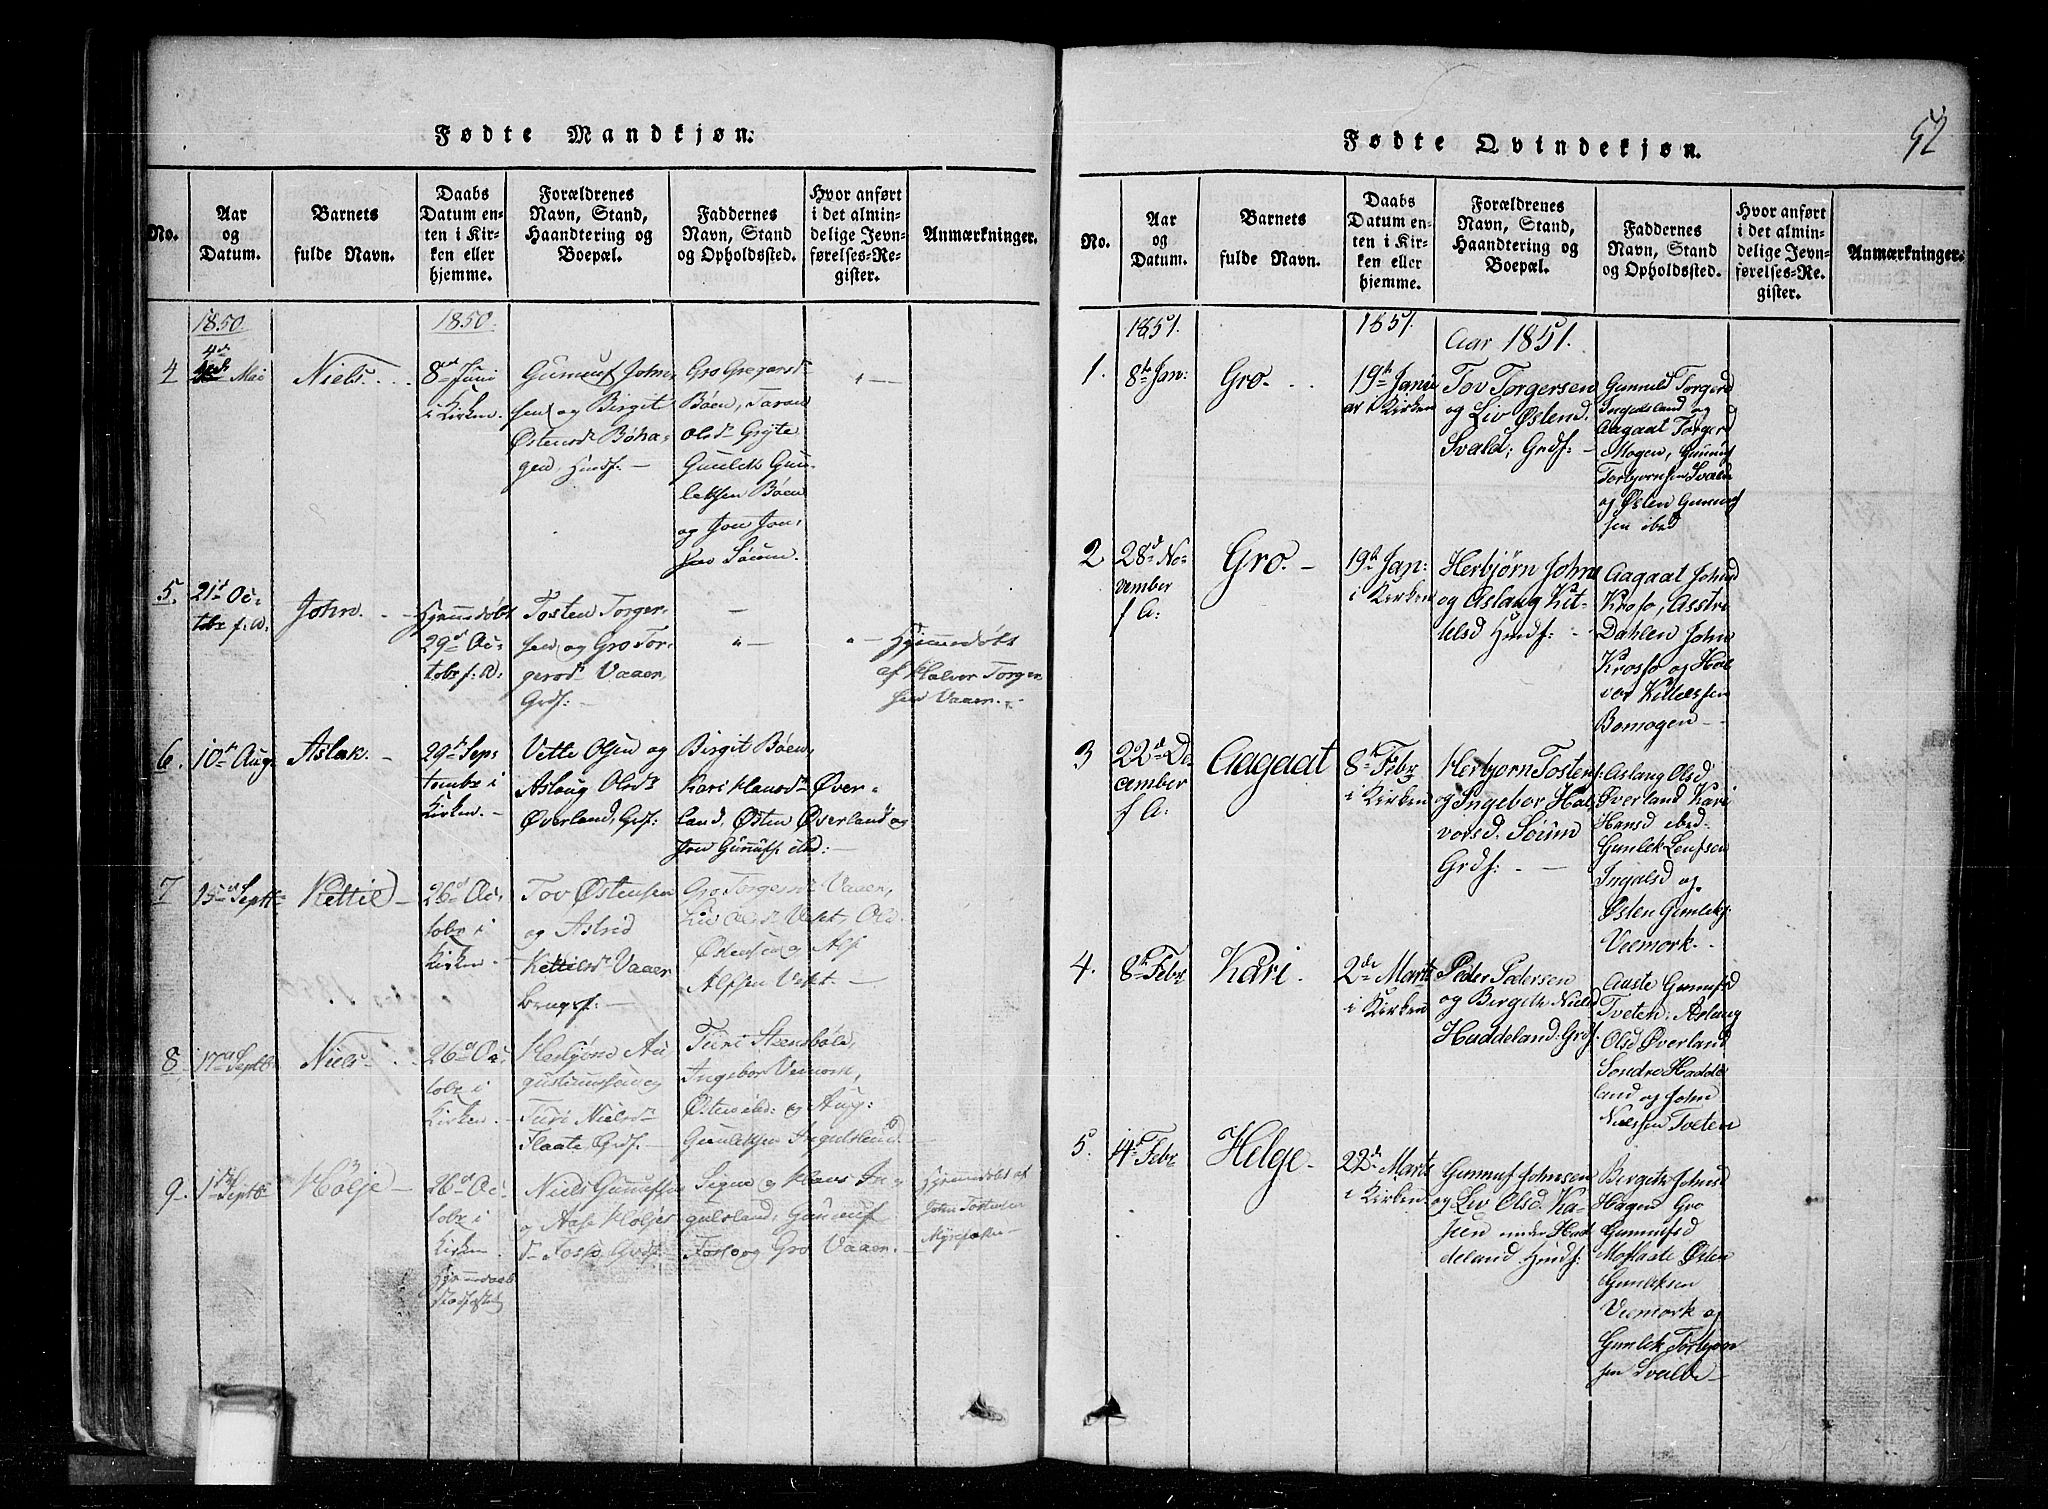 Fødte Mandkjøn.
No.
Aar
og
Datum.
Barnets
fulde Navn.
Daabs
Datum en-
ten i Kir-
ken eller
hjemme.
Forældrenes
Navn, Stand,
Haandtering og
Boepæl.
Faddernes
Navn, Stand
og Opholdssted.
Hvor anført
i det almin-
delige Jevn-
førelses-Re-
gister.
Anmærkninger.
1850.
1850.
4
4de
Mai
Niels
8de Juni
i Kirken.
Gunnuf John-
sen og Birgit
Østensdr Bøha-
gen, Huusf: —
Gro Gregarsd
Bøen, Taran
Olsdr Grÿte
Gunlek Gun-
leksen Bøen
og Jon Jon-
sen Søum.
" —
5.
21de Oc-
tobr f: A.
John.
Hjemmedøbt
29de Oc-
tobr f: A:
Tosten Torger-
sen og Gro Tor-
gersdr Vaaer,
Grdf: —
" —
" —
Hjemmedøbt
af Halvor Torger-
sen Vaaer. —
6.
10de Aug.
Aslak. —
29de Sep-
tembr i
Kirken. —
Vetle Olsen og
Aslaug Olsdr
Øverland, Grdf:
Birgit Bøen,
Kari Klausdr Øver-
land, Østen Øverland og
Jon Gunufs. ibd: —
7
15de Septbr
Kettil —
26de Oc-
tobr i
Kirken. —
Tov Østensen
og Astrid
Kettilsdr Vaaer
Brugsf: —
Gro Torgersdr Vaaer,
Liv Olsdr
Østensen og Alf
Alfsen —
8.
17de Septbr
Niels —
26de Oc-
tobr i
Kirken. —
Herbjørn Au-
gustinussen og
Turi Nielsdr
Flaate Grdf. —
Turi Steensbøle,
Ingebor Vemork,
Østen ibd: og Aug:
Gunleksen Ingulsland
9.
1de Septbr
Hølje —
26de Oc-
tobr i
Kirken
Hjemmedaab
stadfæstet
Niels Gunufsen
og Aase Høljes
dr Fosso Grdf. —
Signe og Klaus In-
gulsland, Gunuuf
Fosso og Gro Vaaer. —
Hjemmedøbt af
John Tostensen
52
Fødte Qvindekjøn.
No.
Aar
og
Datum.
Barnets
fulde Navn.
Daabs
Datum en-
ten i Kir-
ken eller
hjemme.
Forældrenes
Navn, Stand,
Haandtering og
Boepæl.
Faddernes
Navn, Stand
og Opholdssted.
Hvor anført
i det almin-
delige Jevn-
førelses-Re-
gister.
Anmærkninger.
1851.
1851.
Aar 1851.
1.
8de Jan:
Gro.
19de Janu-
ar i Kirken
Tov Torgersen
og Liv Østend.
Svald; Grdf: —
Gunuld Torgerd
Ingulsland og
Aagaat Torgerd
Mogen, Gunuf
Torbjornsen Svald
og Østen Gunuf-
sen ibed
2
28de No-
vember
f A:
Gro. —
19de Jan:
i Kirken
Herbjørn Johns
og Aslaug Kit-
telsd Huusf: —
Aagaat Johnsd
Krosso, Asstri
Dahlen, John
Krosso og Hal-
vor Kittelsen
Bomogen —
3
22de De-
cember
f A:
Aagaat
8de Febr
i Kirken
Herbjorn Tostens:
og Ingebor Hal-
vorsd. Søum
Grdf: —
Aslaug Olsd
Øverland Kari
Hansd ibed.
Gunlek Leufsen
Ingulsl og
Østen Gunleks:
Veemork. —
4.
8de Febr
Kari.
2den Marts
i Kirken
Peder Pedersen
og Birgith Nielsd
Haddeland: Grdf:
Auste Gunufsd
Tveten, Aslaug
Olsd Øverland
Sondre Hadde-
land og John
Nielssen Tveten
5.
14de Febr
Helge. —
22de Marts
i Kirken
Gunnuf Johnsen
og Liv Olsd. Ka-
sien under Had
deland Huusf:
Bergith Johnsd
Hagen Gro
Gunnufsd
Moflaate Østen
Gunleksen
Veemork og
Gunlek Torbjørn
sen Svalde —